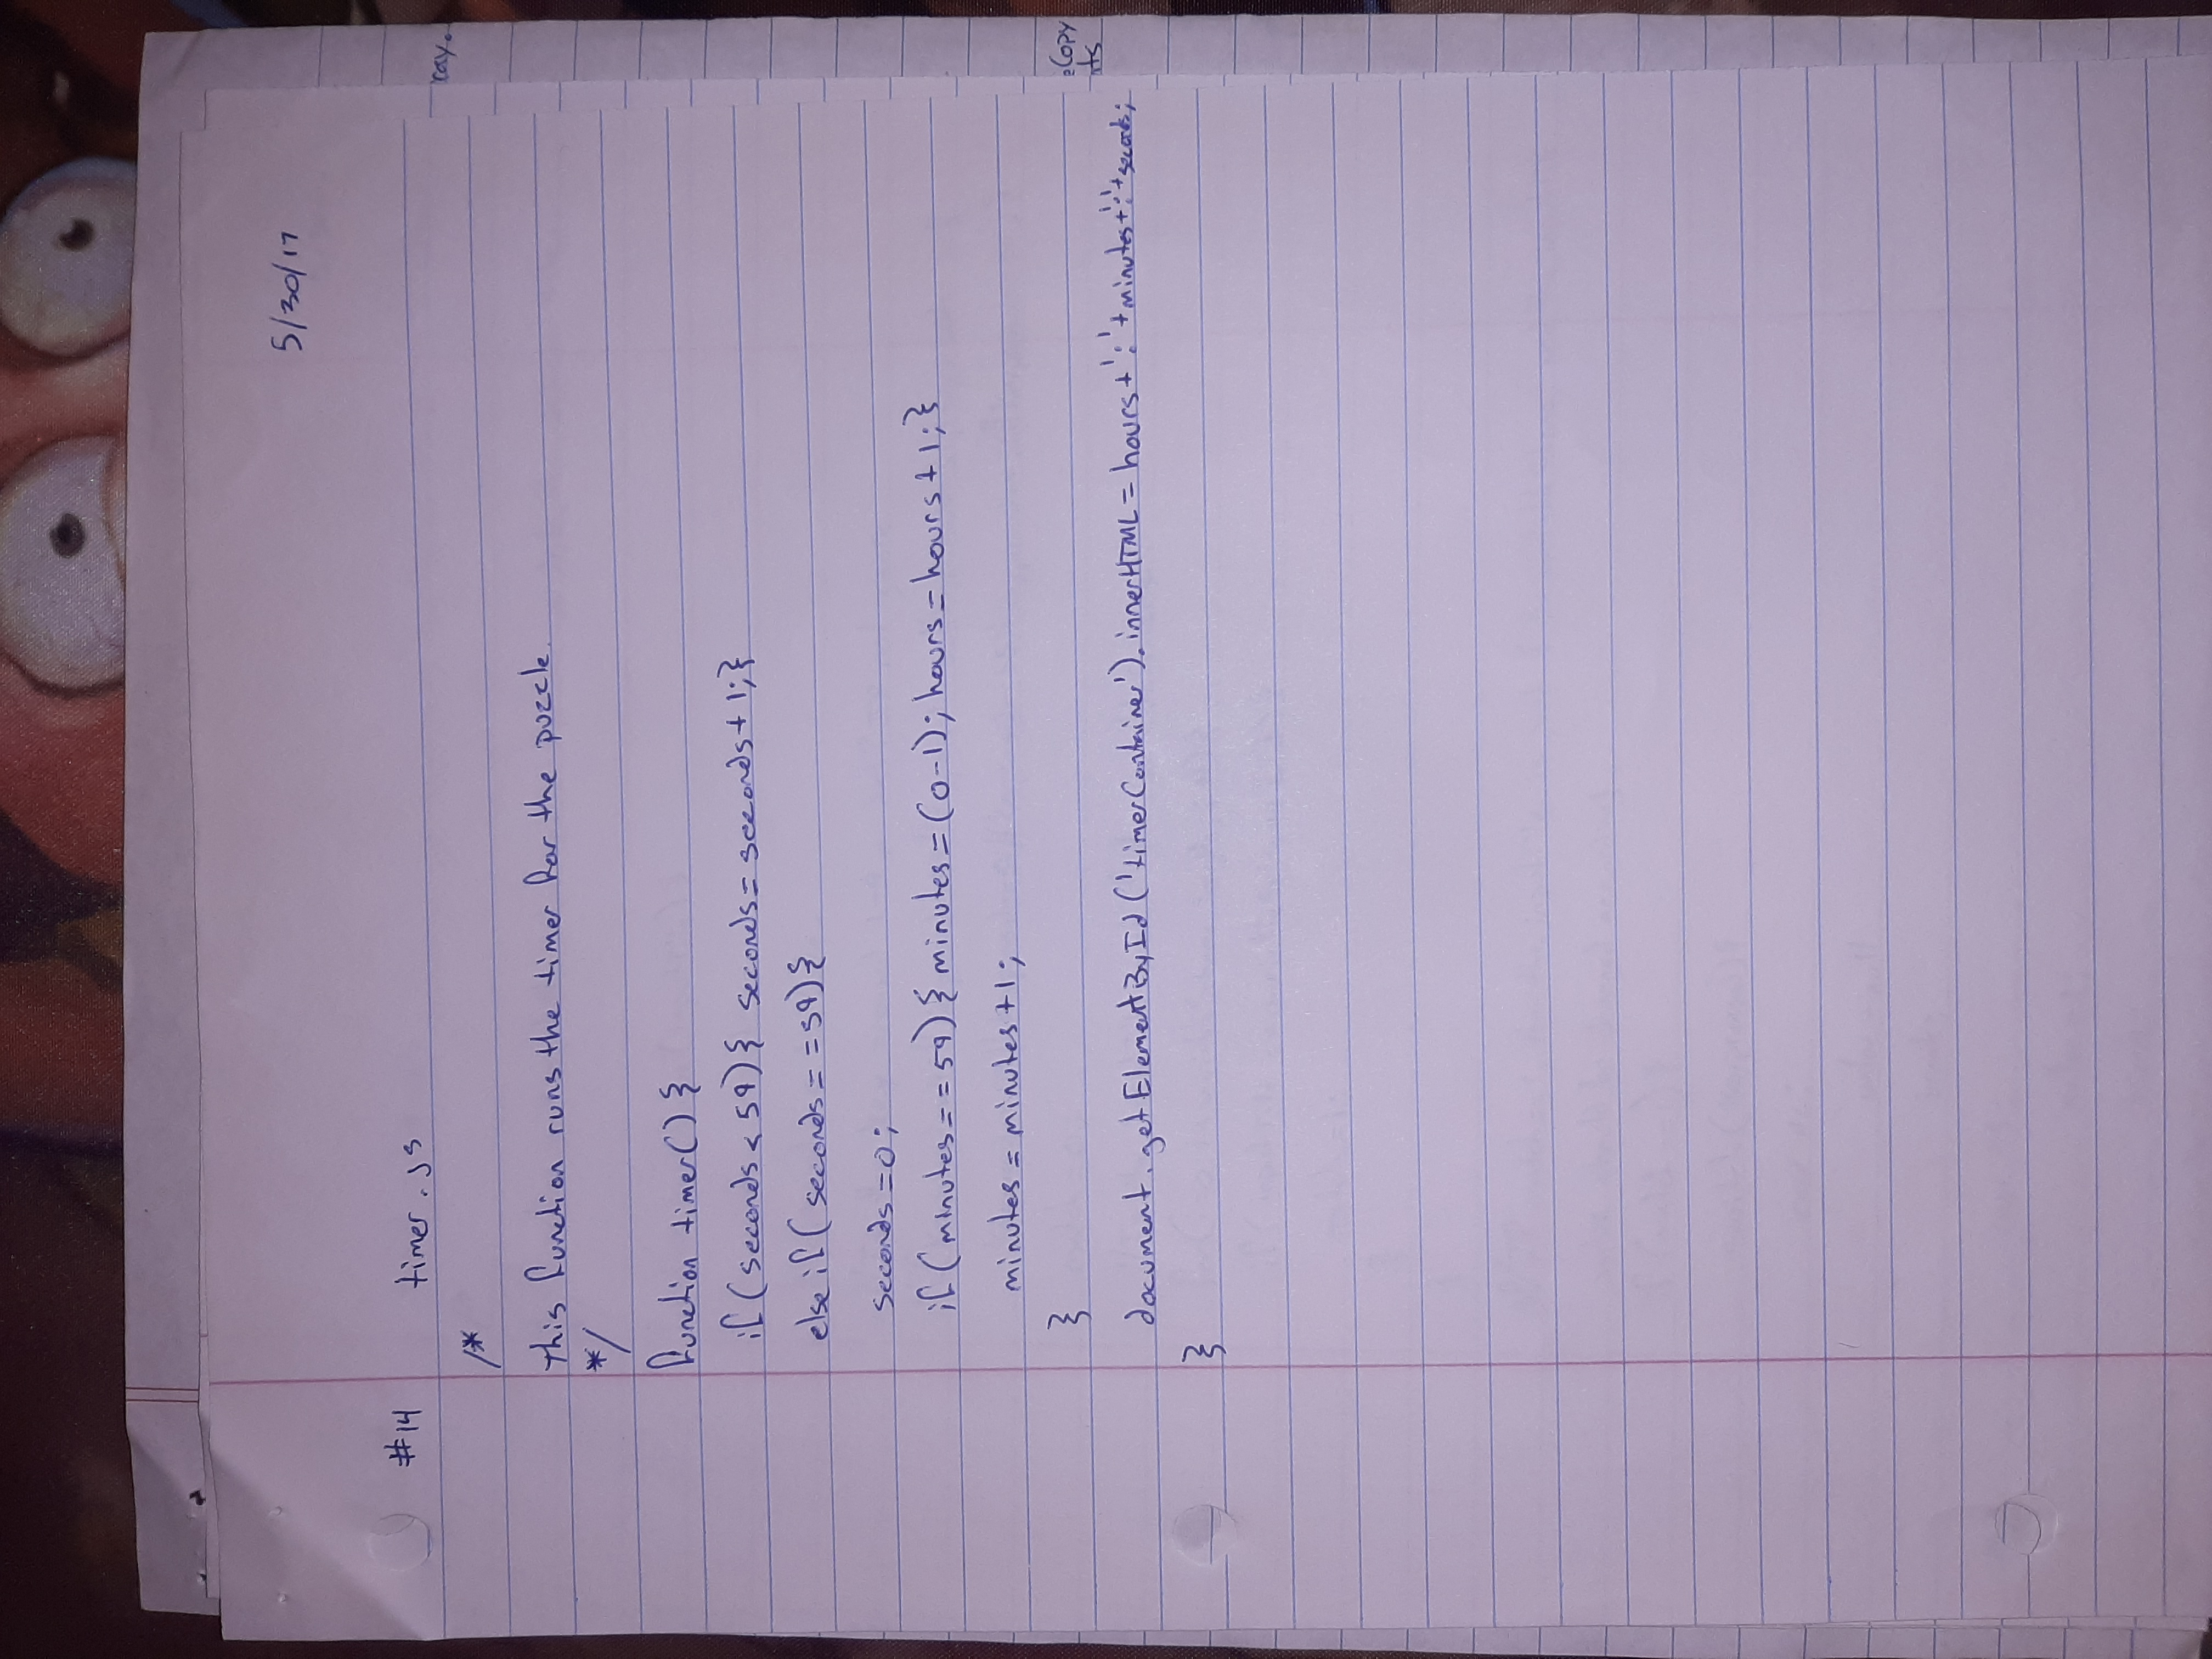 5/30/17
#14 timer.js
/*
This function runs the timer for the puzzle.
*/
function timer() {
if (seconds < 59) { seconds = seconds + 1; }
else if (seconds == 59) {
seconds = 0;
if (minutes == 59) { minutes = (0-1); hours = hours + 1; }
minutes = minutes + 1;
}
document.getElementById('timerContainer').innerHTML = hours + ':' + minutes + ':' + seconds;
}
eCopy